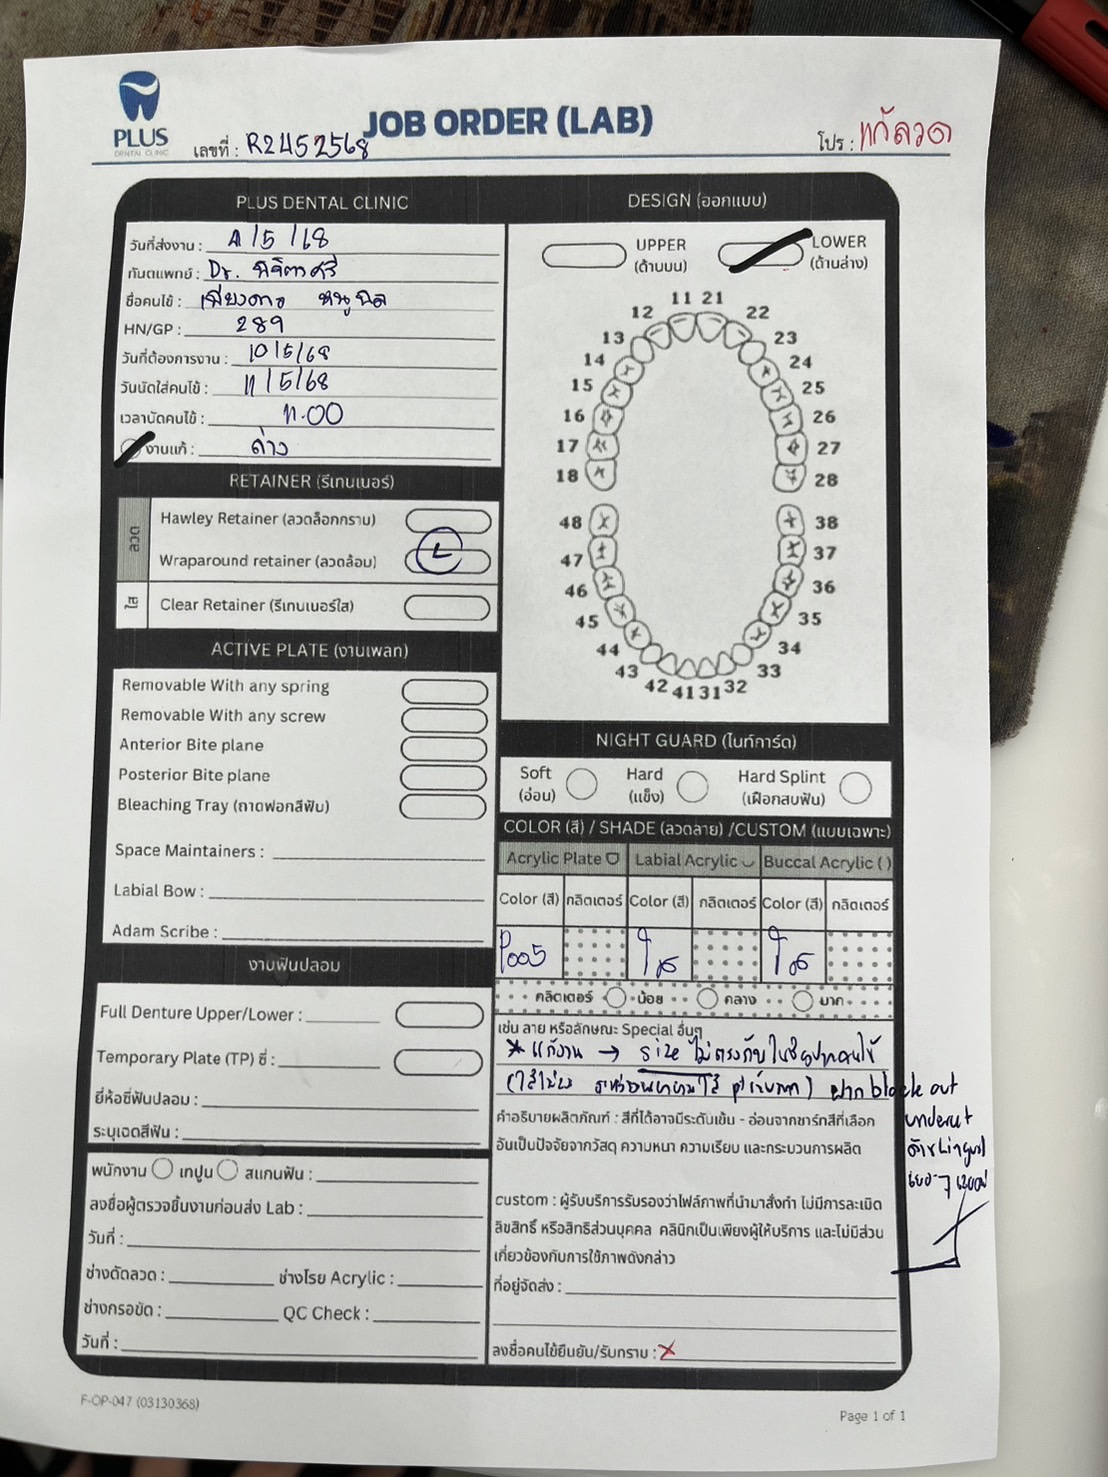 PLUS
DENTAL CLINIC
JOB ORDER (LAB)
เลขที่ : R2452568
โปร : แก้ลวด
PLUS DENTAL CLINIC
วันที่ส่งงาน : /5 /68
ทันตแพทย์ : Dr.
ชื่อคนไข้ : เพียงดาว หนูนิล
HN/GP : 289
วันที่ต้องการงาน : 10/5/68
วันนัดใส่คนไข้ : 11/5/68
เวลานัดคนไข้ : 11.00
งานแก้ : ล่าง
RETAINER (รีเทนเนอร์)
ลวด
Hawley Retainer (ลวดล็อกกราม)
Wraparound retainer (ลวดล้อม) L
ใส
Clear Retainer (รีเทนเนอร์ใส)
ACTIVE PLATE (งานเพลท)
Removable With any spring
Removable With any screw
Anterior Bite plane
Posterior Bite plane
Bleaching Tray (ถาดฟอกสีฟัน)
Space Maintainers :
Labial Bow :
Adam Scribe :
งานฟันปลอม
Full Denture Upper/Lower :
Temporary Plate (TP) ซี่ :
ยี่ห้อซี่ฟันปลอม :
ระบุเฉดสีฟัน :
พนักงาน เทปูน สแกนฟัน :
ลงชื่อผู้ตรวจชิ้นงานก่อนส่ง Lab :
วันที่ :
ช่างดัดลวด : ช่างโรย Acrylic :
ช่างกรอขัด : QC Check :
วันที่ :
DESIGN (ออกแบบ)
UPPER
(ด้านบน)
LOWER
(ด้านล่าง)
11 21
12 22
13 23
14 24
15 25
16 26
17 27
18 28
48 38
47 37
46 36
45 35
44 34
43 33
42 41 31 32
NIGHT GUARD (ไนท์การ์ด)
Soft
(อ่อน)
Hard
(แข็ง)
Hard Splint
(เฝือกสบฟัน)
COLOR (สี) / SHADE (ลวดลาย) /CUSTOM (แบบเฉพาะ)
Acrylic Plate Labial Acrylic Buccal Acrylic ( )
Color (สี) กลิตเตอร์ Color (สี) กลิตเตอร์ Color (สี) กลิตเตอร์
P005 ใส ใส
กลิตเตอร์ น้อย กลาง มาก
เช่น ลาย หรือลักษณะ Special อื่นๆ
* แก้งาน → size ไม่ตรงกับในช่องปากคนไข้
ฝาก block out
undercut
ด้าน Lingual
คำอธิบายผลิตภัณฑ์ : สีที่ได้อาจมีระดับเข้ม - อ่อนจากชาร์ทสีที่เลือก
อันเป็นปัจจัยจากวัสดุ ความหนา ความเรียบ และกระบวนการผลิต
custom : ผู้รับบริการรับรองว่าไฟล์ภาพที่นำมาสั่งทำ ไม่มีการละเมิด
ลิขสิทธิ์ หรือสิทธิส่วนบุคคล คลินิกเป็นเพียงผู้ให้บริการ และไม่มีส่วน
เกี่ยวข้องกับการใช้ภาพดังกล่าว
ที่อยู่จัดส่ง :
ลงชื่อคนไข้ยืนยัน/รับทราบ : X
F-OP-047 (03130368)
Page 1 of 1